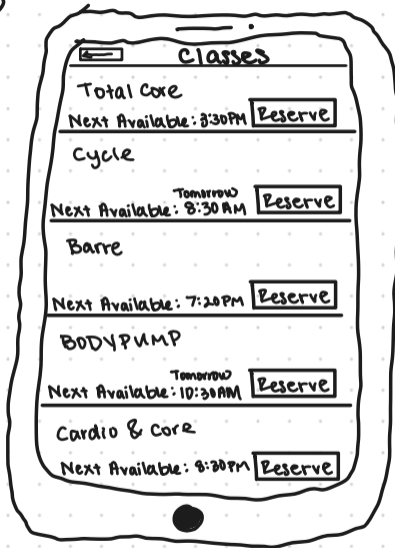 Classes
Total Core
Next Available: 3:30PM Reserve
Cycle
Tomorrow
Next Available: 8:30AM Reserve
Barre
Next Available: 7:20PM Reserve
BODYPUMP
Tomorrow
Next Available: 10:30AM Reserve
Cardio & Core
Next Available: 8:30PM Reserve